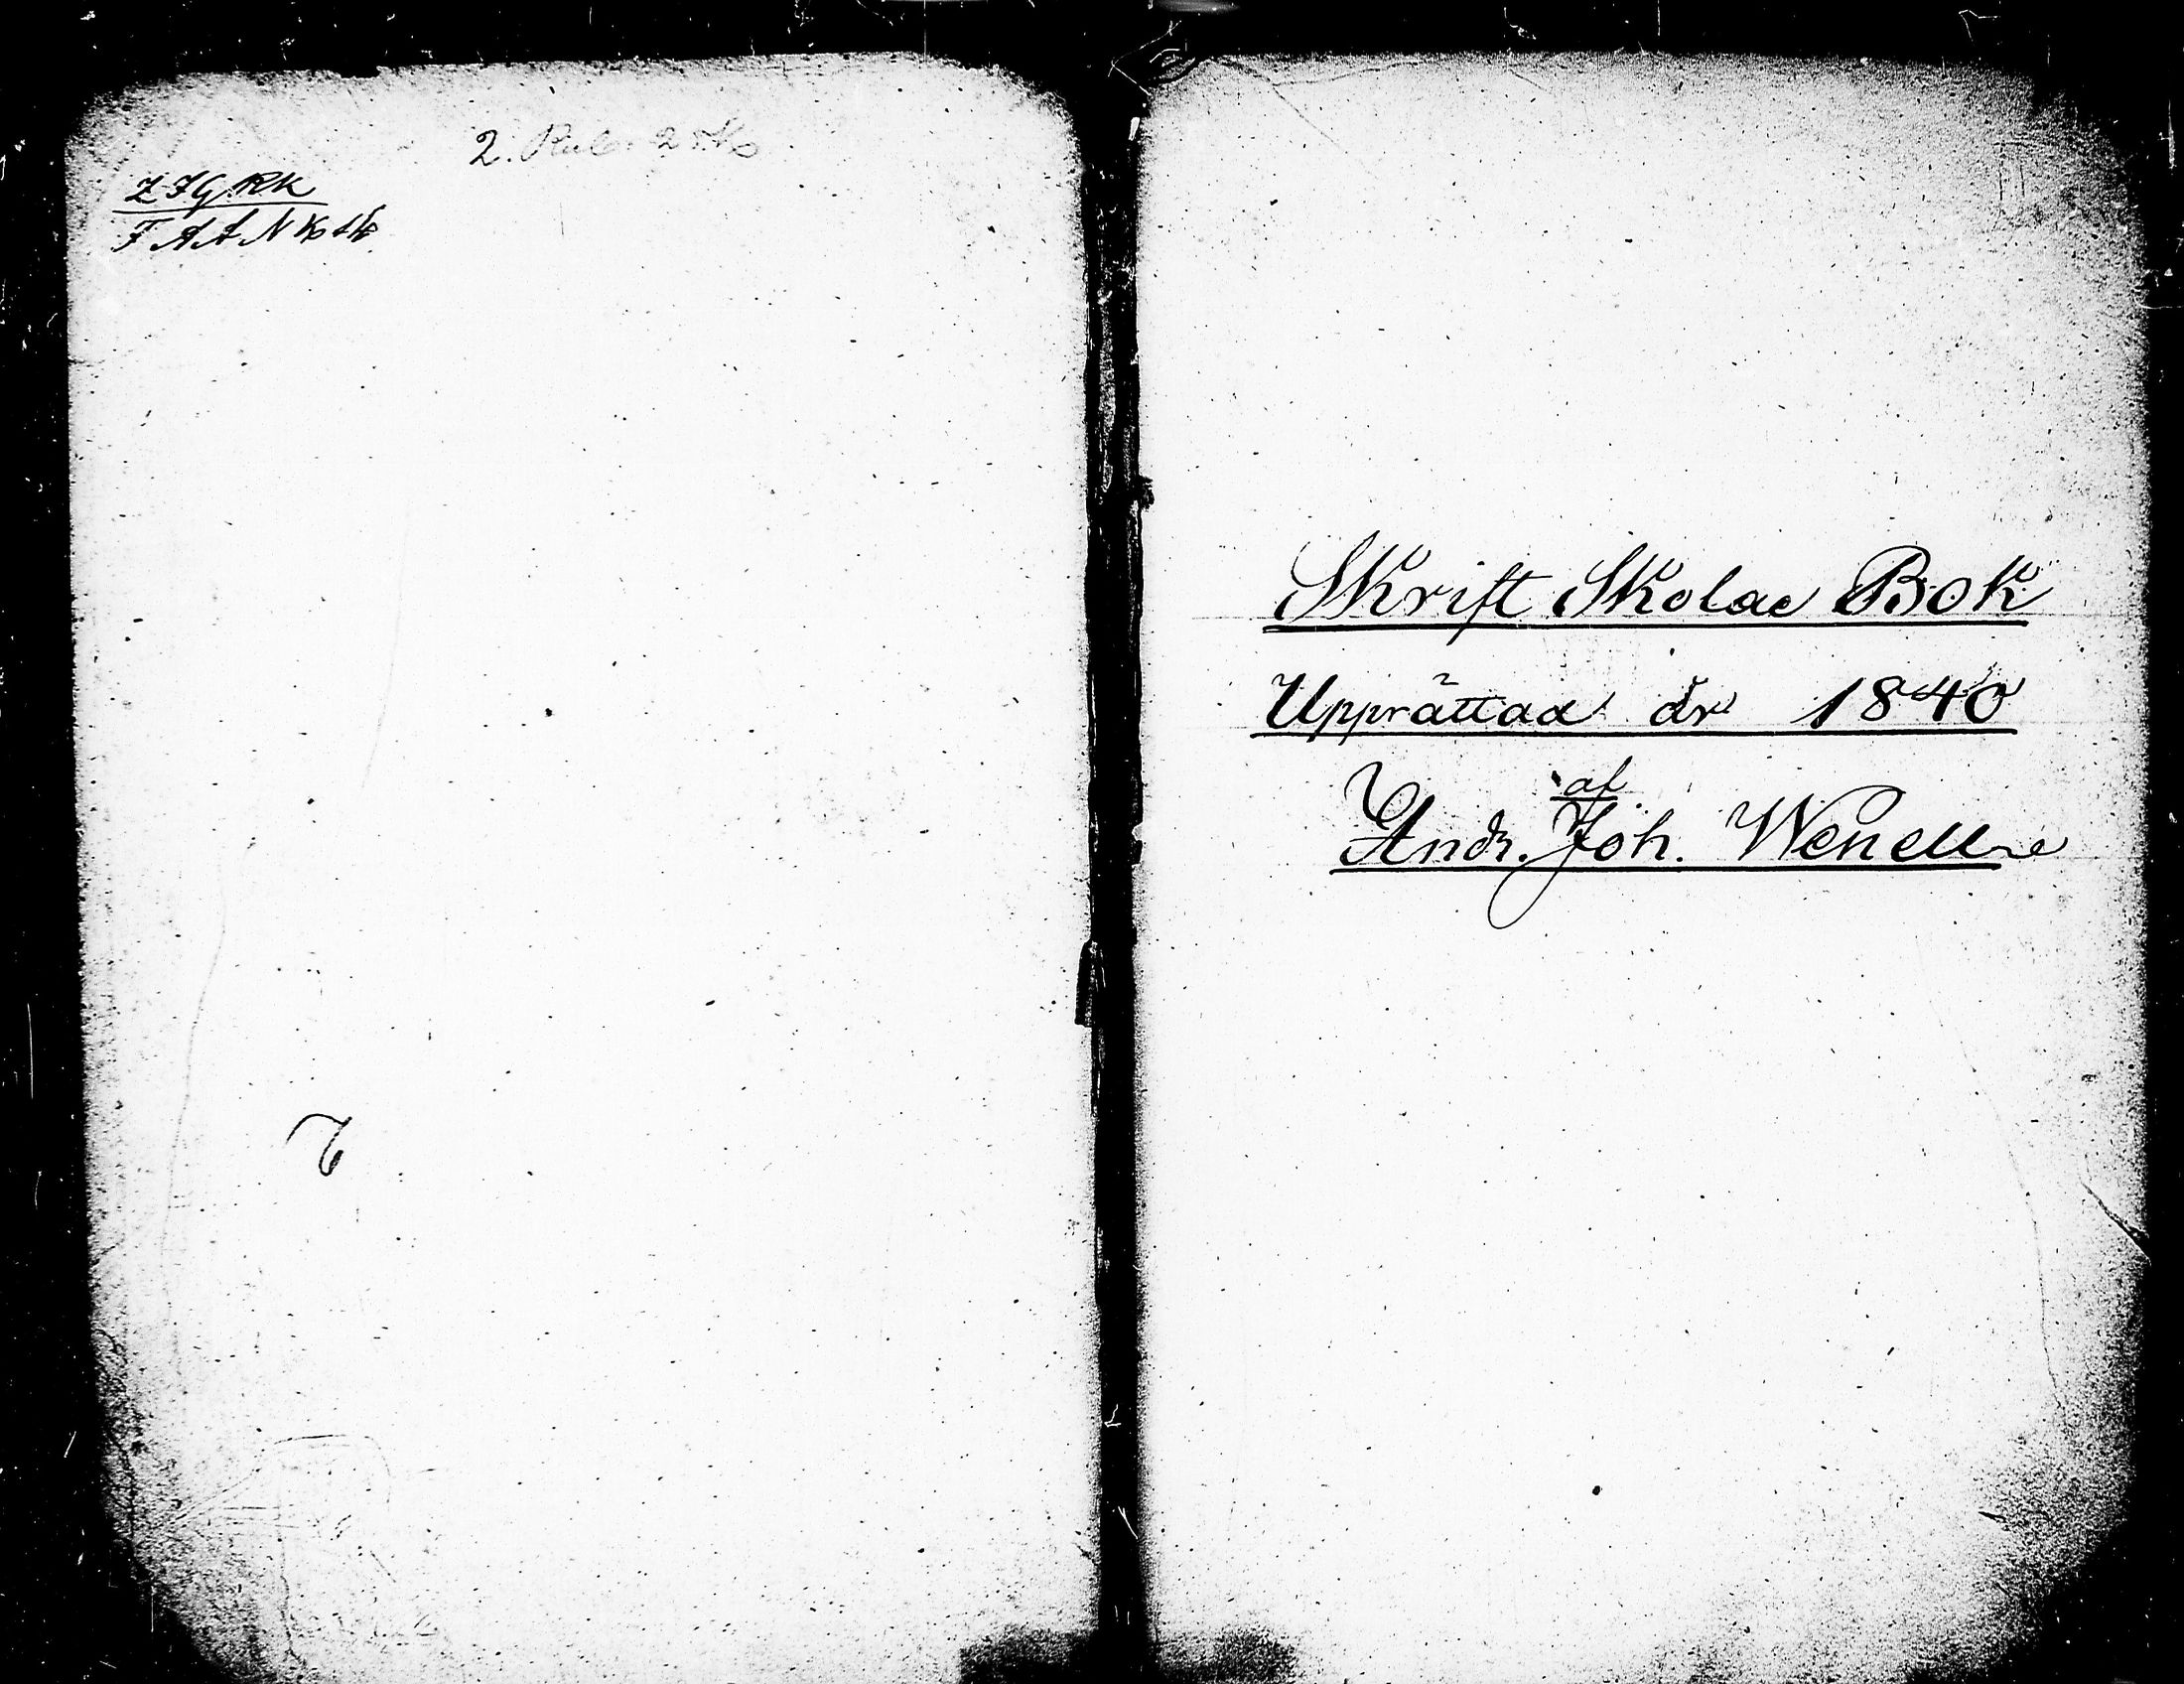 2. Rul.
Z F G RK
F A A N Ko
Skrift Skolae Bok
Upprättad år 1840
af
Andr. Joh. Wenell